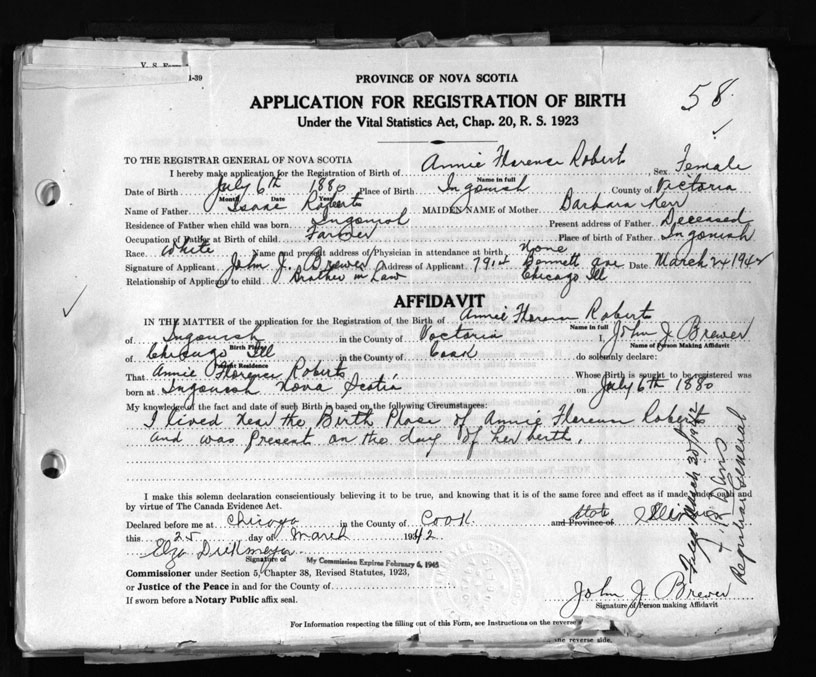 V. S. Form
1-39
PROVINCE OF NOVA SCOTIA
58
APPLICATION FOR REGISTRATION OF BIRTH
Under the Vital Statistics Act, Chap. 20, R. S. 1923
TO THE REGISTRAR GENERAL OF NOVA SCOTIA
I hereby make application for the Registration of Birth of Annie Florence Roberts Sex Female
Name in full
Date of Birth July 6th 1880 Place of Birth Ingonish County of Victoria
Month Date Year
Name of Father Isaac Roberts MAIDEN NAME of Mother Barbara Kerr
Residence of Father when child was born Ingonish Present address of Father Deceased
Occupation of Father at Birth of child Farmer Place of birth of Father Ingonish
Race White Name and present address of Physician in attendance at birth None
Signature of Applicant John J. Brewer Address of Applicant Bennett ave Date March 24 1942
Relationship of Applicant to child Brother in Law Chicago Ill
AFFIDAVIT
IN THE MATTER of the application for the Registration of the Birth of Annie Florence Roberts
Name in full
of Ingonish in the County of Victoria I, John J Brewer
Birth Place Name of Person Making Affidavit
of Chicago Ill in the County of Cook do solemnly declare:
Present Residence
That Annie Florence Roberts Whose Birth is sought to be registered was
born at Ingonish Nova Scotia on July 6th 1880
My knowledge of the fact and date of such Birth is based on the following Circumstances:
I lived near the Birth Place of Annie Florence Roberts
and was Present on the day of her berth.
I make this solemn declaration conscientiously believing it to be true, and knowing that it is of the same force and effect as if made under oath and
by virtue of The Canada Evidence Act.
Declared before me at Chicago in the County of Cook and Province of State Illinois
this 25 day of March 1942.
Elza
Signature of My Commission Expires February 6, 1943
Commissioner under Section 5, Chapter 38, Revised Statutes, 1923,
or Justice of the Peace in and for the County of
If sworn before a Notary Public affix seal.
John J Brewer
Signature of Person making Affidavit
For Information respecting the filling out of this Form, see Instructions on the reverse
one reverse side.
Filed March 30/1942
Davis
Registrar General